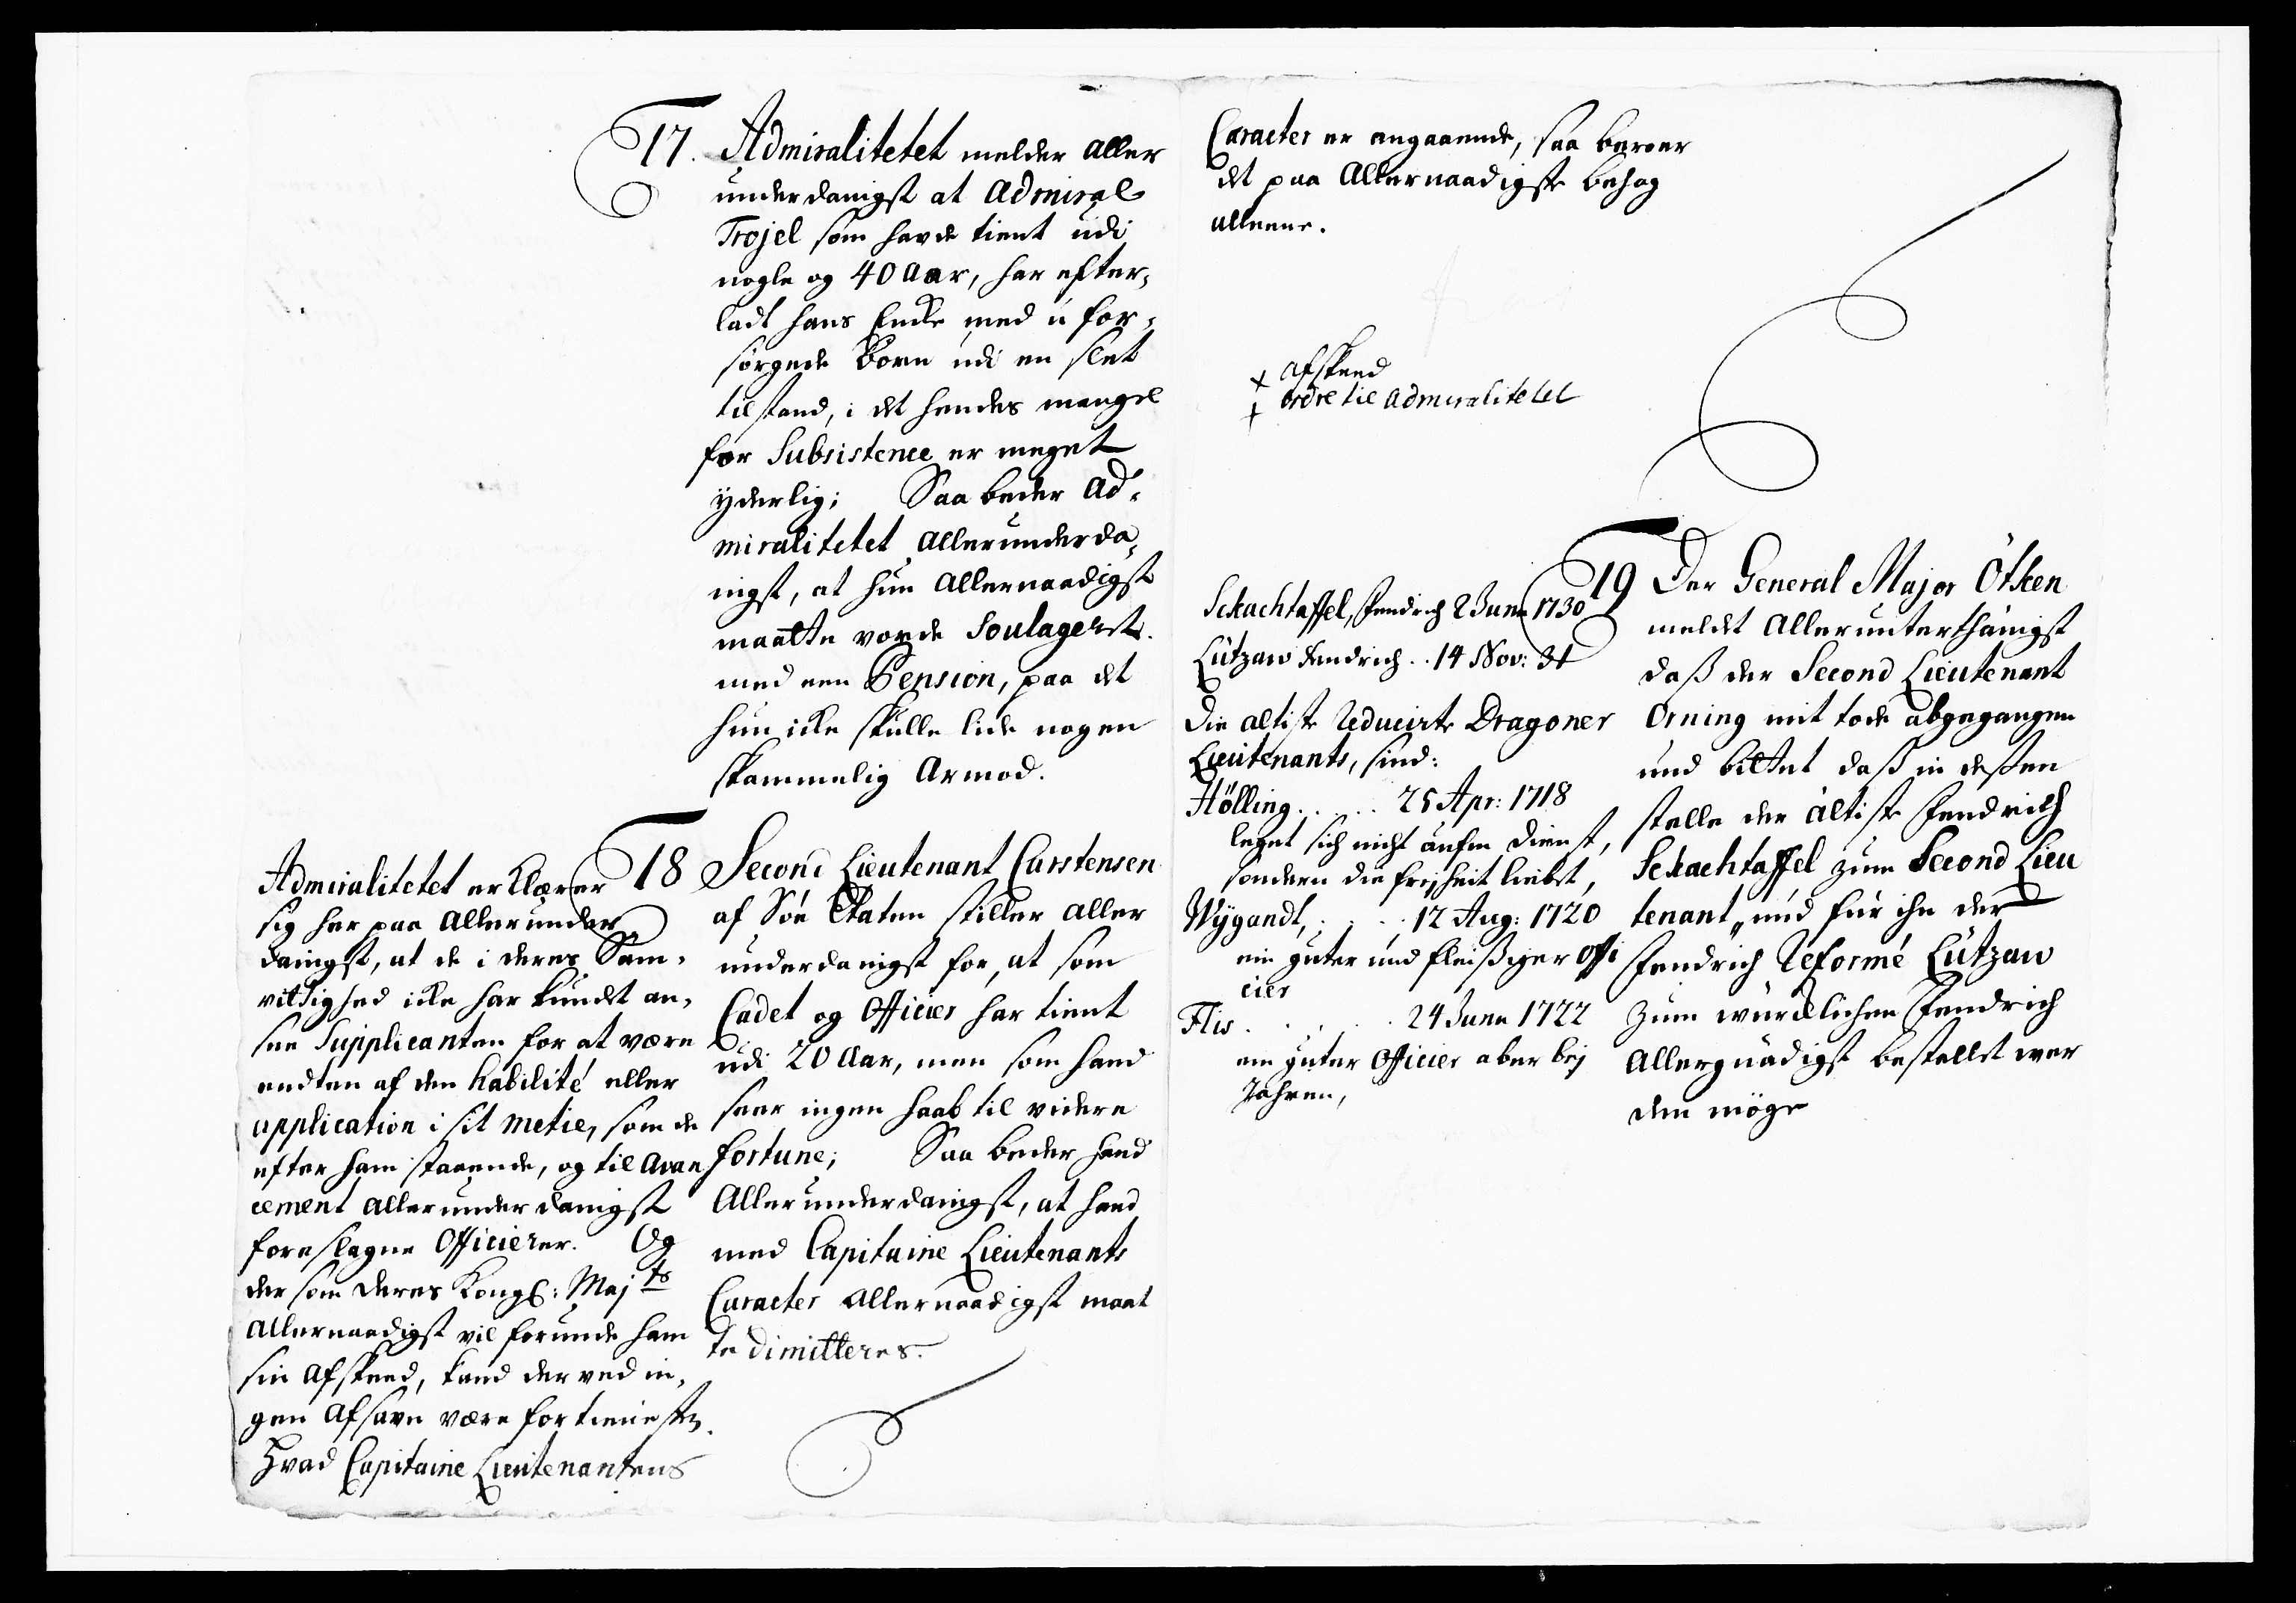 17. Admiralitetet melder aller
underdanigst at Admiral
Trojel som havde tient udi
nogle og 40 Aar, har efter-
ladt hans Encke med u for-
sørgede Børn udi en slet
tilstand, i det hendes mangel
for Subsistence er meget
yderlig; Saa beder Ad-
miralitetet allerunderda-
nigst, at hun allernaadigst
maatte vorde Soulageret
med een Pension, paa det
hun icke skulle lide nogen
skammelig Armod.
18 Second Lieutenant Carstensen
af Søe Etaten stiller aller
underdanigst for, at som
Cadet og Officier har tient
udi 20 Aar, men som hand
seer ingen haab til videre
fortune; Saa beder hand
Allerunderdanigst, at hand
med Capitaine Lieutenants
Caracter allernaadigst maat
te dimitteres.
Admiralitetet erklærer
sig her paa allerunder-
danigst, at de i deres Sam-
vittighed icke har kundet an-
see Supplicanten for at være
endten af den habilité eller
application i sit metie, som de
efter ham staaende, og til Avan
cement allerunderdanigst
foreslagne Officierer. Og
der som deres Kongl: Majts
allernaadigst vil forunde ham
sin Afskeed, kand der ved in-
gen Afsavn være for tienesten.
Hvad Capitaine Lieutenantens
Caracter er angaaende, saa beroer
det paa Allernaadigste behag
alleene.
+ Afskeed
+ Ordre til Admiralitetet
19 Der General Major Ötken
meldet Allerunterthänigst
daß der Second Lieutenant
Orning mit tode abgegangen
und bittet daß in deßen
stelle der ältiste Fendrich
Schachtaffel zum Second Lieu
tenant, und für ihn der
Fendrich Reformé Lützaw
zum würcklichen Fendrich
Allergnädigst bestellet wer
den möge
Schachtaffel, Fendrich 2 June 1730
Lützaw Fendrich .. 14 Nov: 31
Die altiste Reducirte Dragoner
Lieutenants, sind:
Hölling ..... 25 Apr: 1718
leget sich nicht aufm Dienst,
sondern die freyheit liebet,
Wÿgandt, .... 12 Aug: 1720
ein guter und fleißiger Offi
cier
Flis ..... 24 June 1722
ein guter Officier aber beÿ
Jahren,